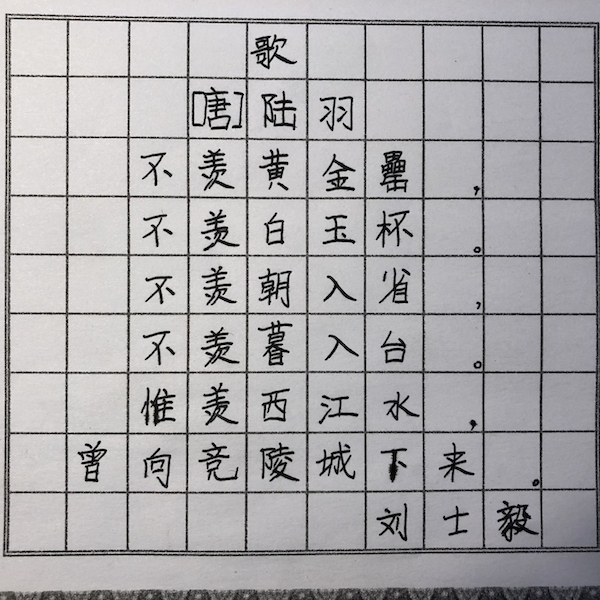 歌
[唐]陆羽
不羡黄金罍，
不羡白玉杯。
不羡朝入省，
不羡暮入台。
惟羡西江水，
曾向竞陵城下来。
刘士毅